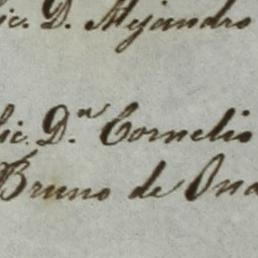 ic. D. Alejandro
ic. D.ⁿ Cornelio
Bruno de Ona